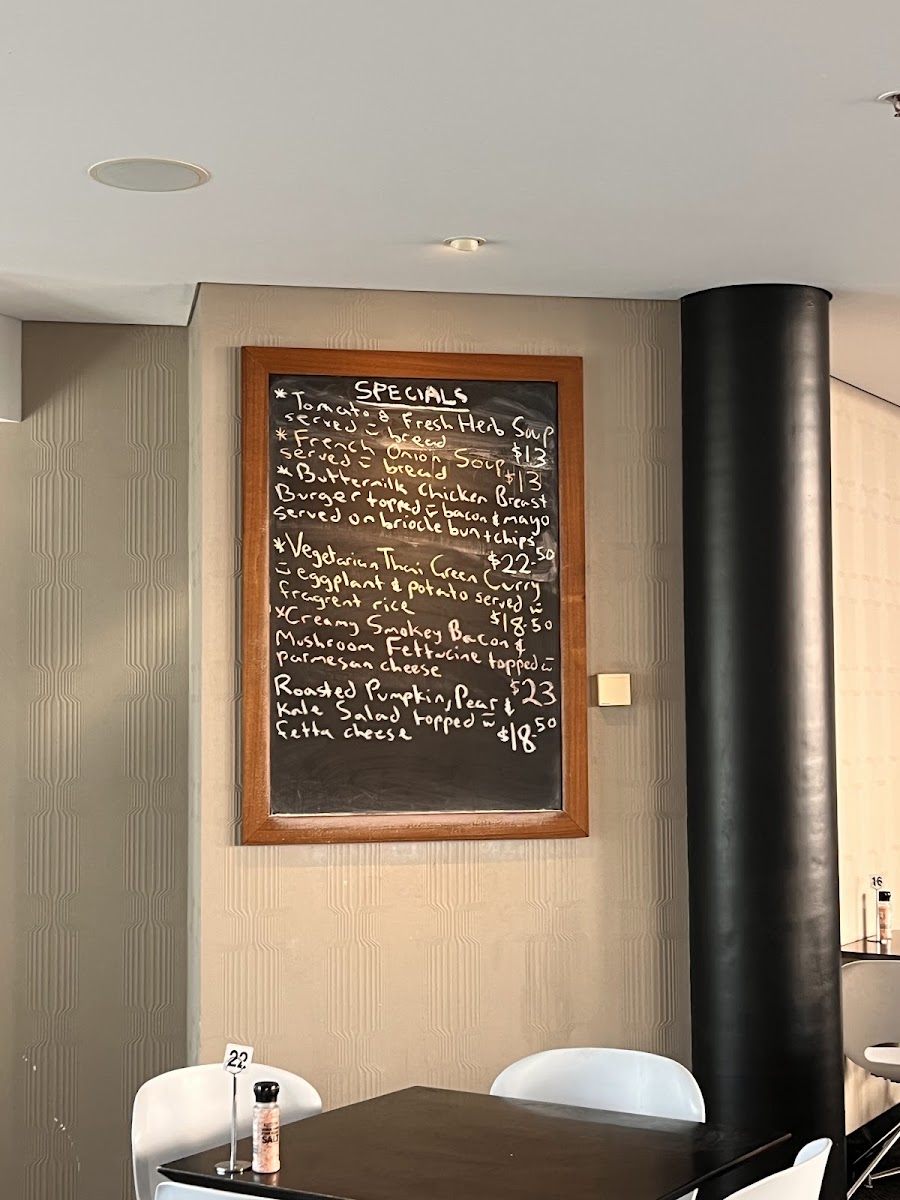 SPECIALS
* Tomato & Fresh Herb Soup
served w̄ bread $13
* French Onion Soup
served w̄ bread $13
* Buttermilk Chicken Breast
Burger topped w̄ bacon & mayo
served on brioche bun + chips
$22.50
* Vegetarian Thai Green Curry
w̄ eggplant & potato served w̄
fragrent rice $18.50
* Creamy Smokey Bacon &
Mushroom Fettucine topped w̄
parmesan cheese
$23
Roasted Pumpkin, Pear &
Kale Salad topped w̄ $18.50
fetta cheese
16
22
SALT